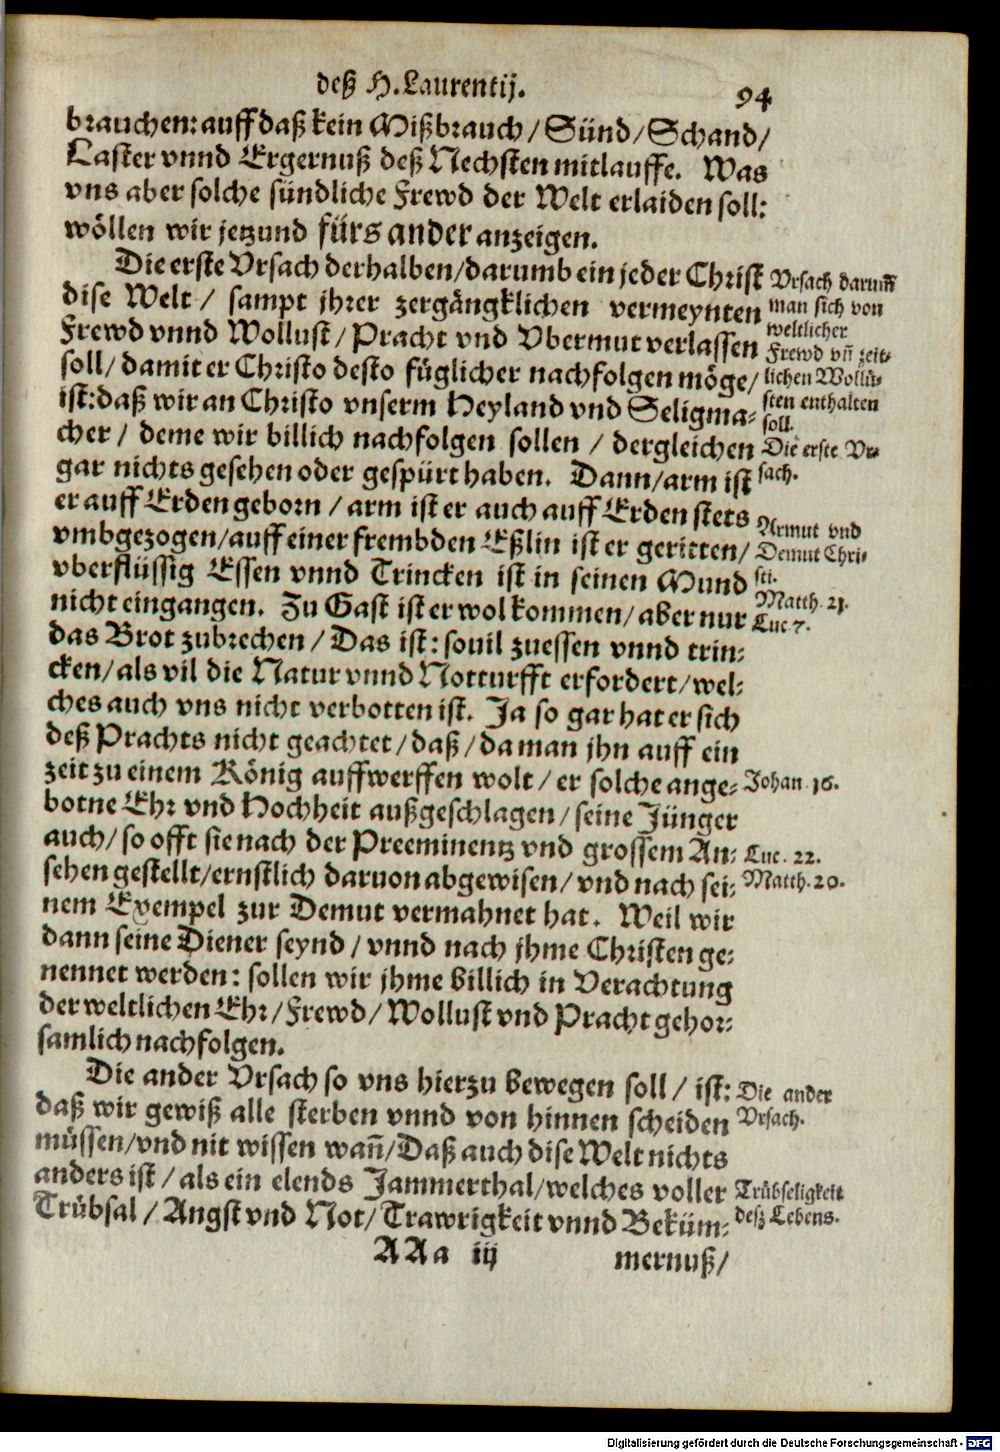 deß H. Laurentij.
94
brauchen: auff daß kein Mißbrauch / Sünd / Schand /
Laster vnnd Ergernuß deß Nechsten mitlauffe. Was
vns aber solche sündliche Frewd der Welt erlaiden soll:
wöllen wir jetzund fürs ander anzeigen.
Die erste Vrsach derhalben / darumb ein jeder Christ
dise Welt / sampt jhrer zergängklichen vermeynten
Frewd vnnd Wollust / Pracht vnd Vbermut verlassen
soll / damit er Christo desto füglicher nachfolgen möge /
ist: daß wir an Christo vnserm Heyland vnd Seligma-
cher / deme wir billich nachfolgen sollen / dergleichen
gar nichts gesehen oder gespürt haben. Dann / arm ist
er auff Erden geborn / arm ist er auch auff Erden stets
vmbgezogen / auff einer frembden Eßlin ist er geritten /
vberflüssig Essen vnnd Trincken ist in seinen Mund
nicht eingangen. Zu Gast ist er wol kommen / aber nur
das Brot zubrechen / Das ist: souil zuessen vnnd trin-
cken / als vil die Natur vnnd Notturfft erfordert / wel-
ches auch vns nicht verbotten ist. Ja so gar hat er sich
deß Prachts nicht geachtet / daß / da man jhn auff ein
zeit zu einem König auffwerffen wolt / er solche ange-
botne Ehr vnd Hochheit außgeschlagen / seine Jünger
auch / so offt sie nach der Preeminentz vnd grossem An-
sehen gestellt / ernstlich daruon abgewisen / vnd nach sei-
nem Exempel zur Demut vermahnet hat. Weil wir
dann seine Diener seynd / vnnd nach jhme Christen ge-
nennet werden: sollen wir jhme billich in Verachtung
der weltlichen Ehr / Frewd / Wollust vnd Pracht gehor-
samlich nachfolgen.
Die ander Vrsach so vns hierzu bewegen soll / ist:
daß wir gewiß alle sterben vnnd von hinnen scheiden
müssen / vnd nit wissen wañ / Daß auch dise Welt nichts
anders ist / als ein elends Jammerthal / welches voller
Trübsal / Angst vnd Not / Trawrigkeit vnnd Beküm-
AAa iij
mernuß /
Vrsach darum̃
man sich von
weltlicher
Frewd vñ zeit-
lichen Wollü-
sten enthalten
soll.
Die erste Vr-
sach.
Armut vnd
Demut Chri-
sti.
Matth. 21.
Luc 7.
Johan. 16.
Luc. 22.
Matth. 20.
Die ander
Vrsach.
Trübseligkeit
deß Lebens.
Digitalisierung gefördert durch die Deutsche Forschungsgemeinschaft - DFG